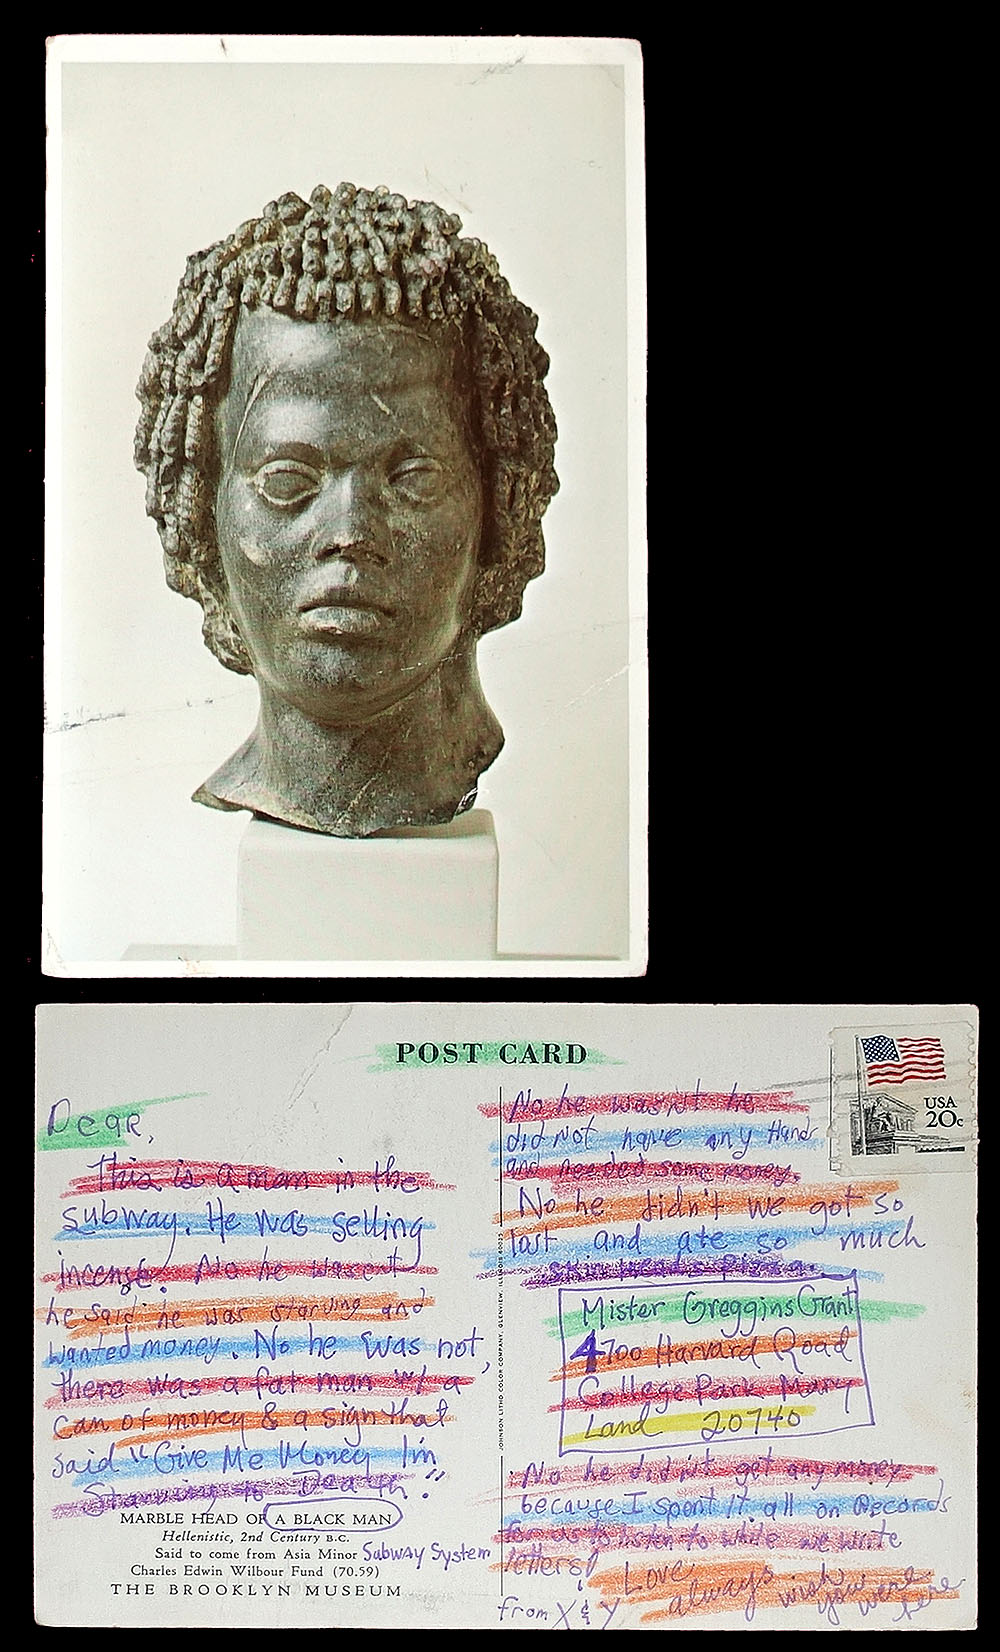 POST CARD
USA
20c
Dear,
This is a man in the
subway. He was selling
incense. No he wasent
he said he was starving and
wanted money. No he was not,
there was a fat man w/ a
can of money & a sign that
said "Give Me Money I'm
Starving to Death"!
MARBLE HEAD OF A BLACK MAN
Hellenistic, 2nd Century B.C.
Said to come from Asia Minor Subway System
Charles Edwin Wilbour Fund (70.59)
THE BROOKLYN MUSEUM
JOHNSON LITHO COLOR COMPANY, GLENVIEW, ILLINOIS 60025
No he wasn't he
did not have any Hands
and needed some money.
No he didn't we got so
lost and ate so much
skin heads pizza.
Mister Greggins Grant
4700 Harvard Road
College Park Mary
Land 20740
No he didn't get any money
because I spent it all on Records
for us to listen to while we write
letters!
Love,
always wish
you were
here
from X & Y